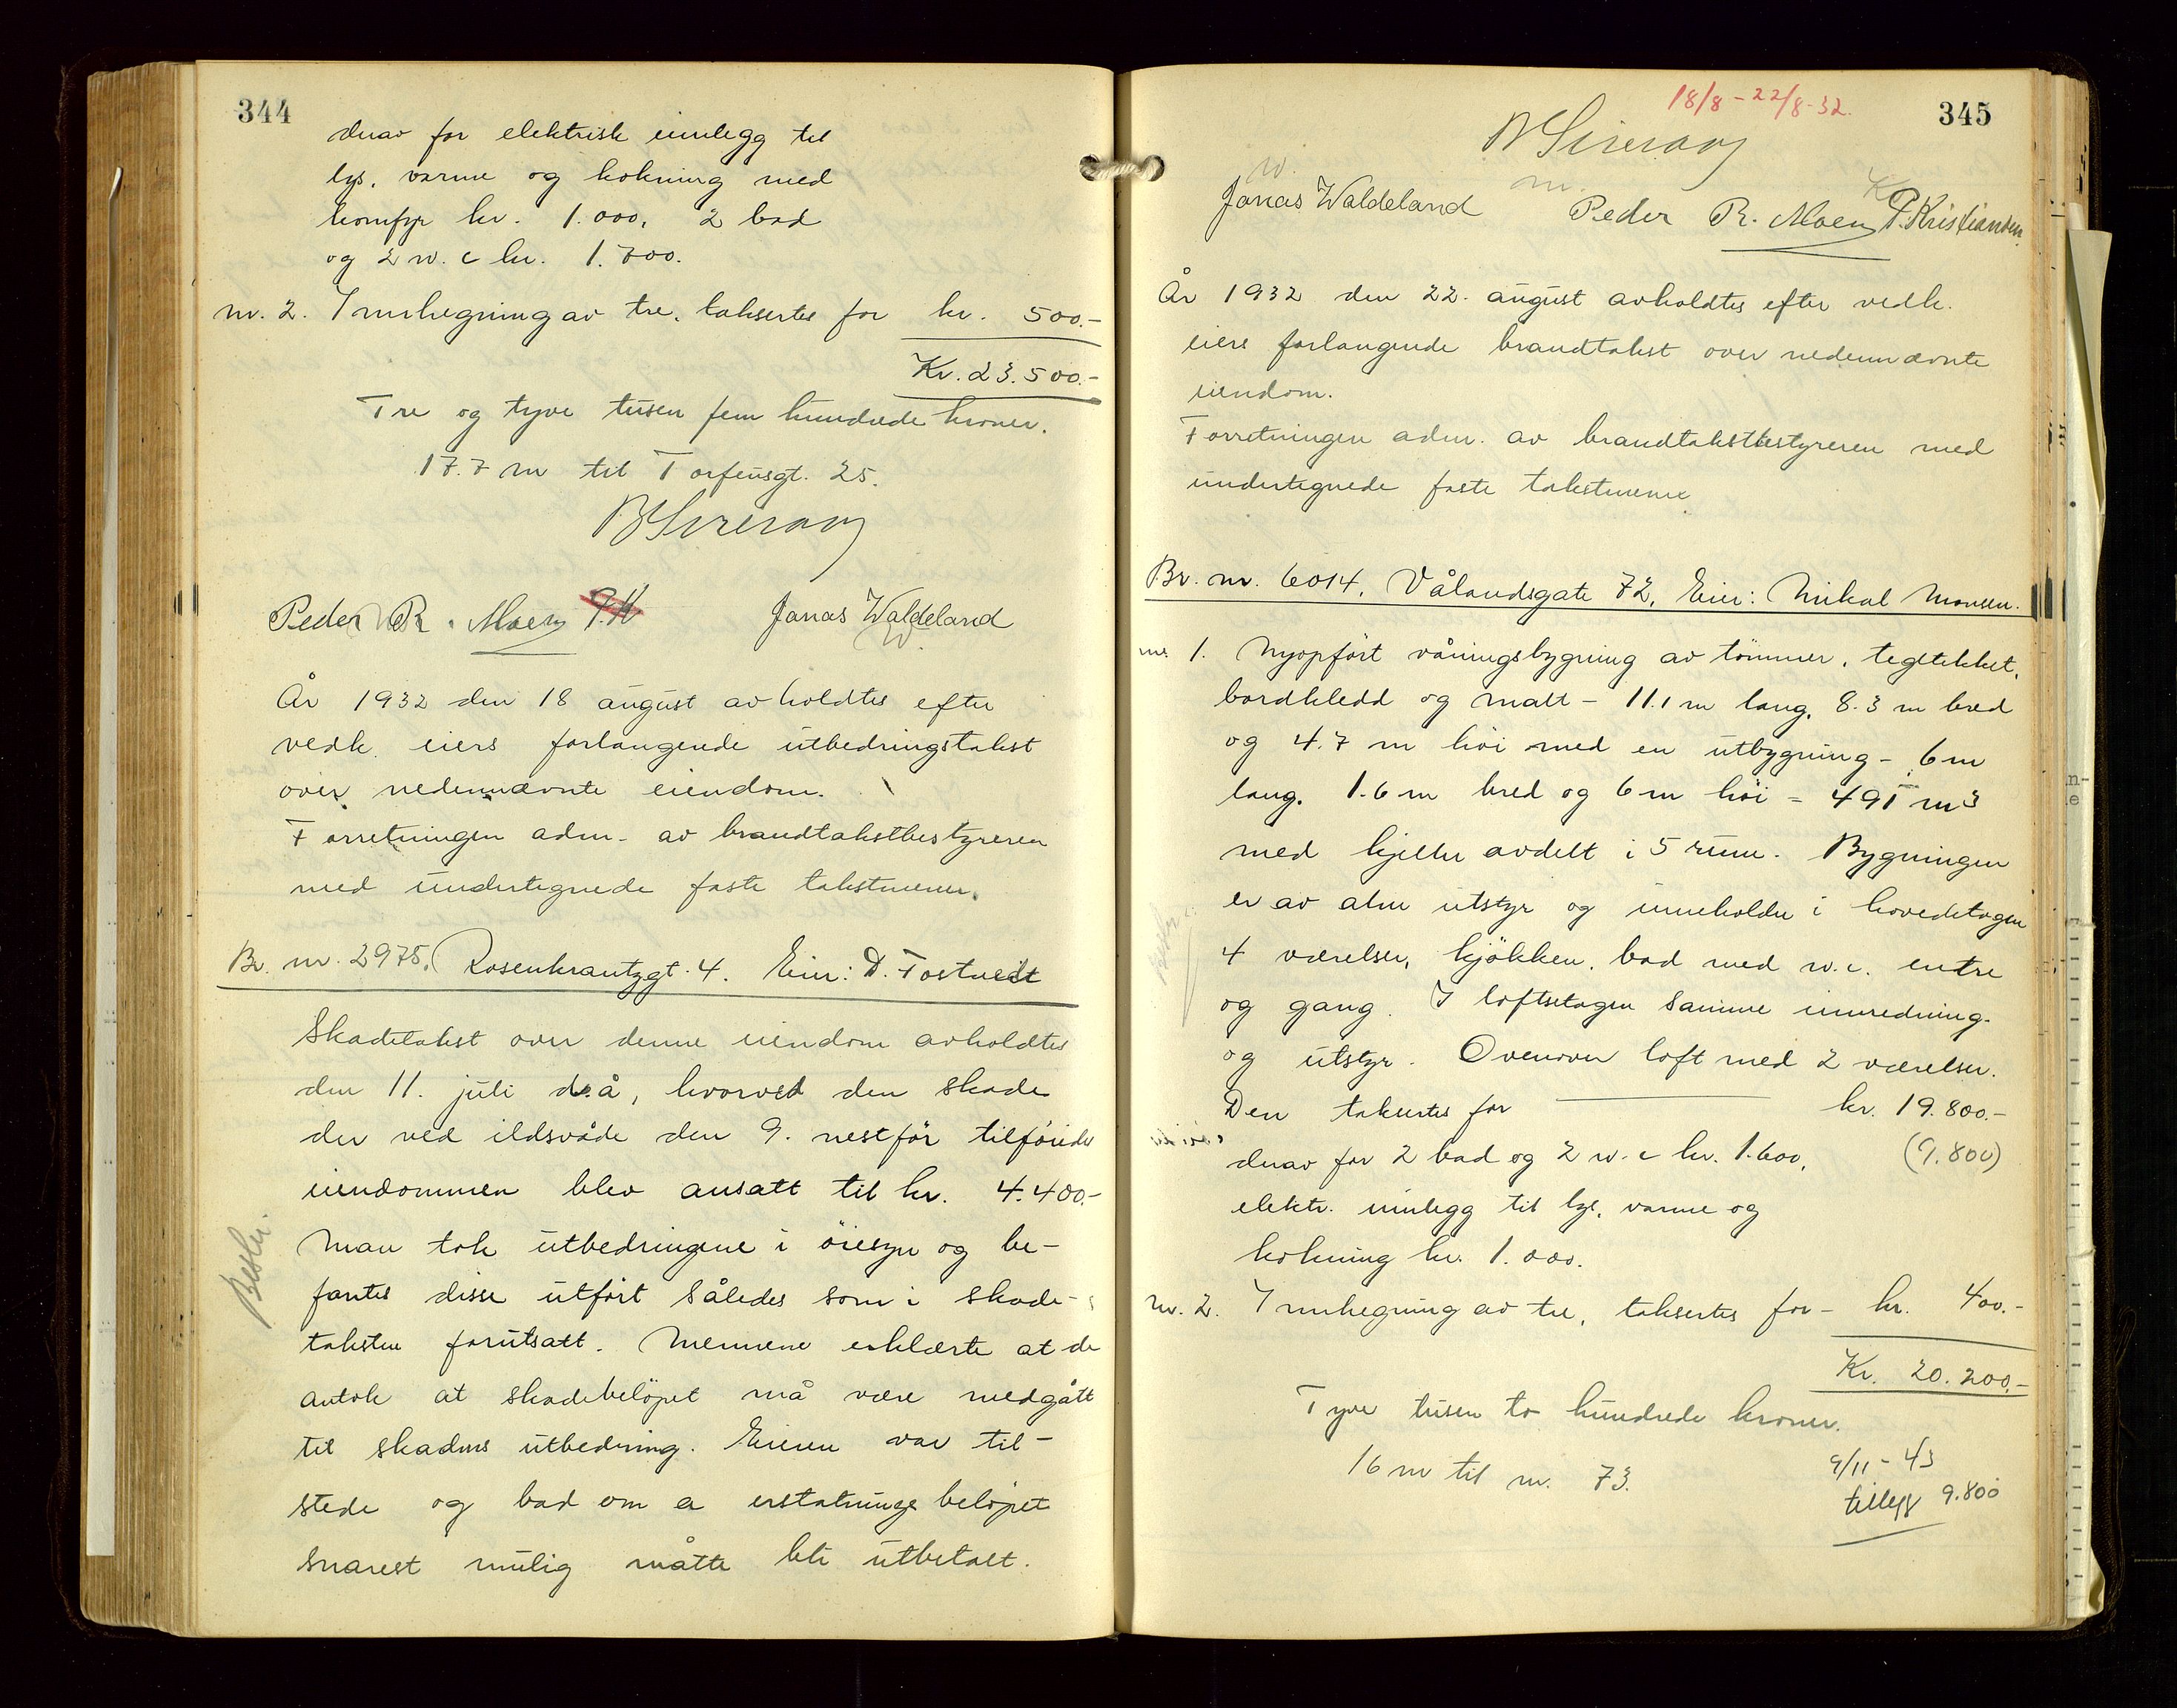 344
derav for elektrisk innlegg til
lys, varme og kokning med
komfyr kr. 1.000, 2 bad
og 2 w.c kr. 1.700.
nr. 2. Innhegning av tre, taksertes for kr. 500.-
Kr. 23.500.-
Tre og tyve tusen fem hundrede kroner.
17.7 m til Torfeusgt. 25.
Peder R. Moen
Jonas Waldeland
År 1932 den 18 august avholdtes efter
vedk. eiers forlangende utbedringstakst
over nedennævnte eiendom.
Forretningen adm. av brandtakstbestyreren
med undertegnede faste takstmenn.
Br. nr. 2975. Rosenkrantzgt. 4. Eier: D. Tostvedt
Skadetakst over denne eiendom avholdtes
den 11. juli d.å, hvorved den skade
der ved ildsvåde den 9. nestför tilföiedes
eiendommen blev ansatt til kr. 4.400.-
Man tok utbedringene i öiesyn og be-
fantes disse utfört således som i skade-
taksten forutsatt. Mennene erklærte at de
antok at skadebelöpet må være medgått
til skadens utbedning. Eieren var til-
stede og bad om a erstatnings belöpet
snarest mulig måtte bli utbetalt.
345
18/8 - 22/8-32.
Jonas Waldeland Peder R. Moen P. Kristiansen.
År 1932 den 22. august avholdtes efter vedk.
eiers forlangende brandtakst over nedennævnte
eiendom.
Forretningen adm. av brandtakstbestyreren med
undertegnede faste takstmenn
Br. nr. 6014, Vålandsgate 72, Eier: Mikal Monsen.
nr. 1. Nyopfört våningsbygning av tömmer, tegltekket,
bordkledd og malt - 11.1 m lang, 8.3 m bred
og 4.7 m höi med en utbygning - 6 m
lang, 1.6 m bred og 6 m höi = 491 m3
med kjeller avdelt i 5 rum. Bygningen
er av alm utstyr og inneholder i hovedetagen
4 værelser, kjökken, bad med w.c. entre
og gang. I loftsetagen samme innredning
og utstyr. Ovenover loft med 2 værelser.
Den taksertes for kr. 19.800.-
derav for 2 bad og 2 w.c kr. 1.600, (9.800)
elektr. innlegg til lys, varme og
kokning kr. 1.000.
nr. 2. Innhegning av tre, taksertes for - kr. 400.-
Kr. 20.200.-
Tyve tusen to hundrede kroner.
16 m til nr. 73.
9/11 - 43
tillegg 9.800